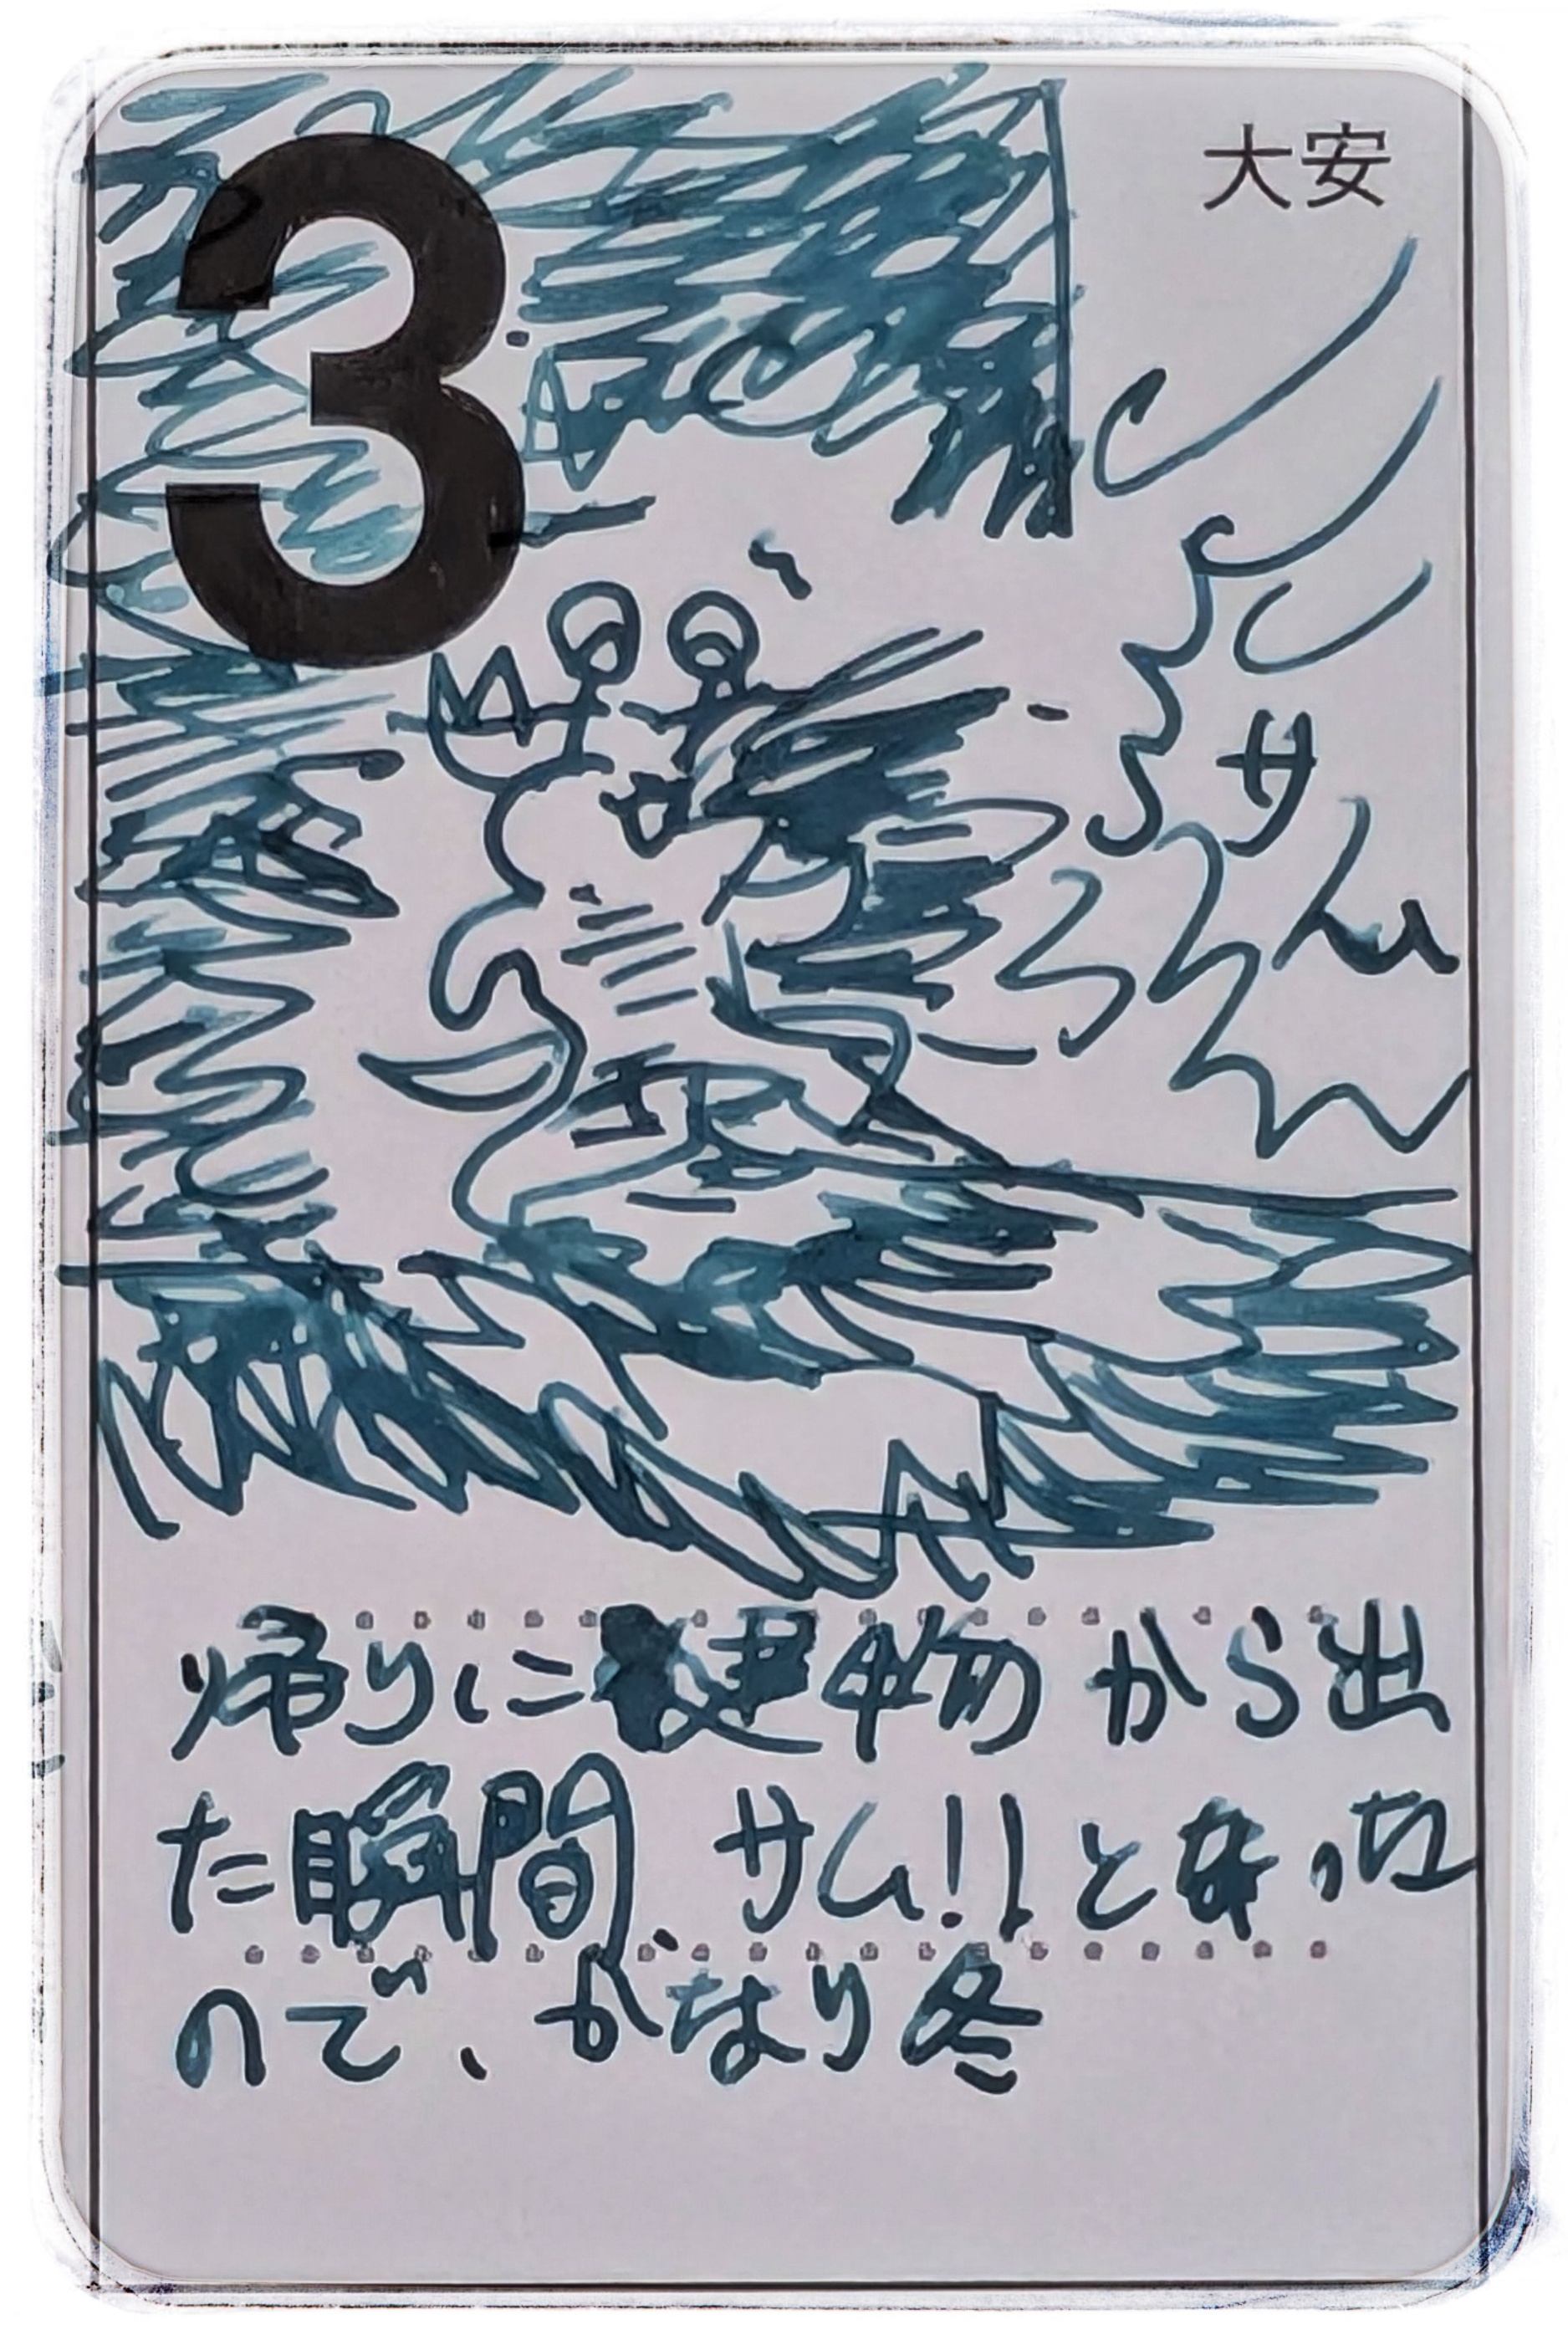 3
大安
サムい
帰りに建物から出
た瞬間、サム!!となった
ので、かなり冬